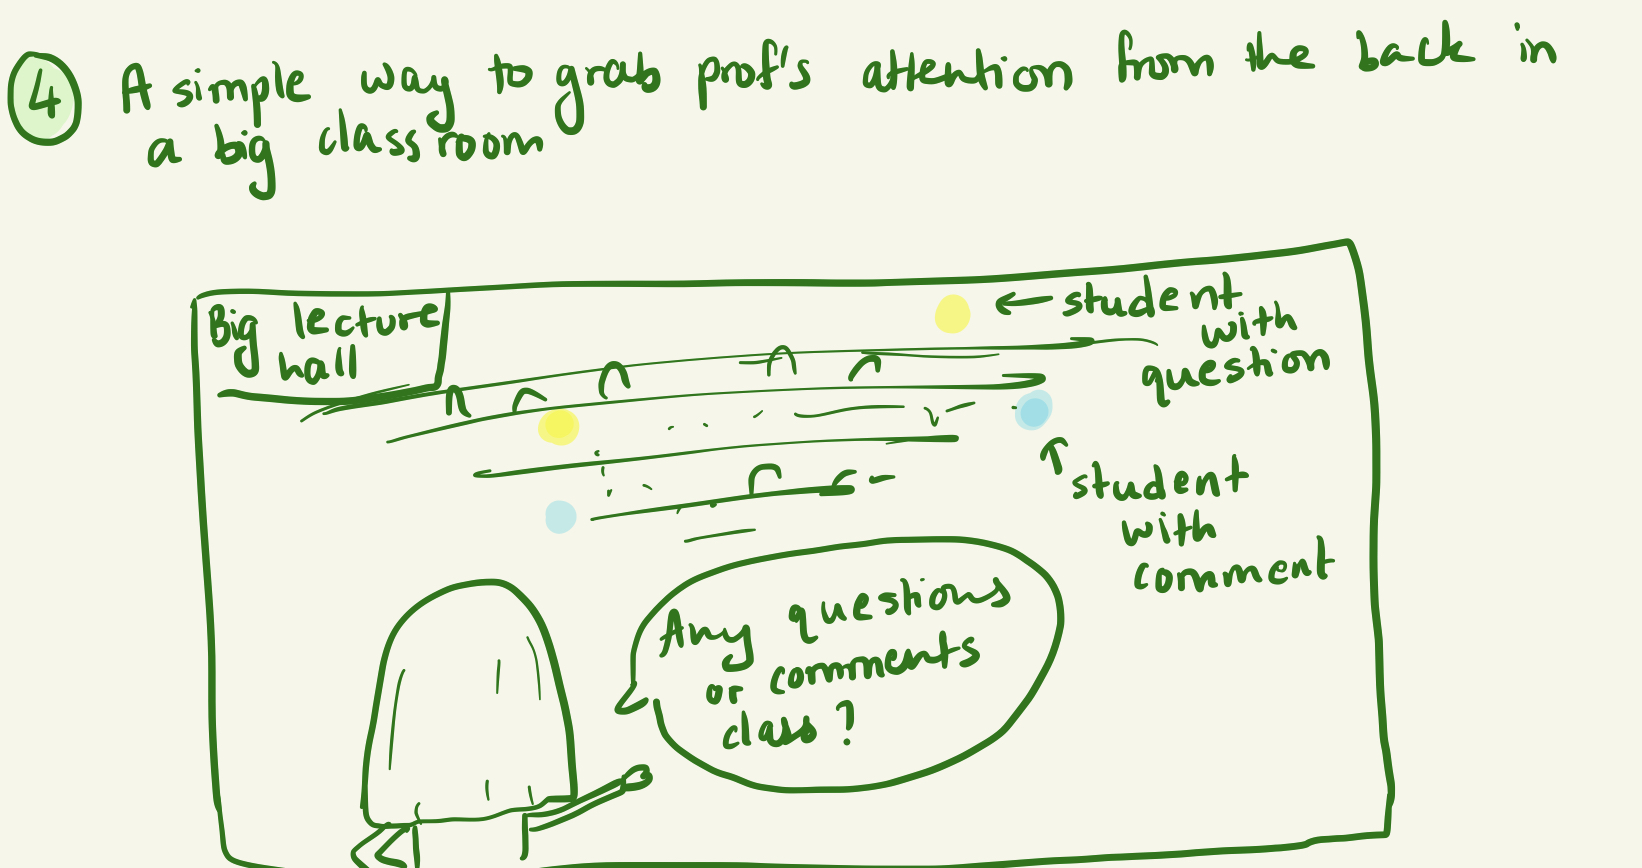 4 A simple way to grab prof's attention from the back in
a big classroom
Big lecture
hall
← student
with
question
↑
student
with
comment
Any questions
or comments
class?